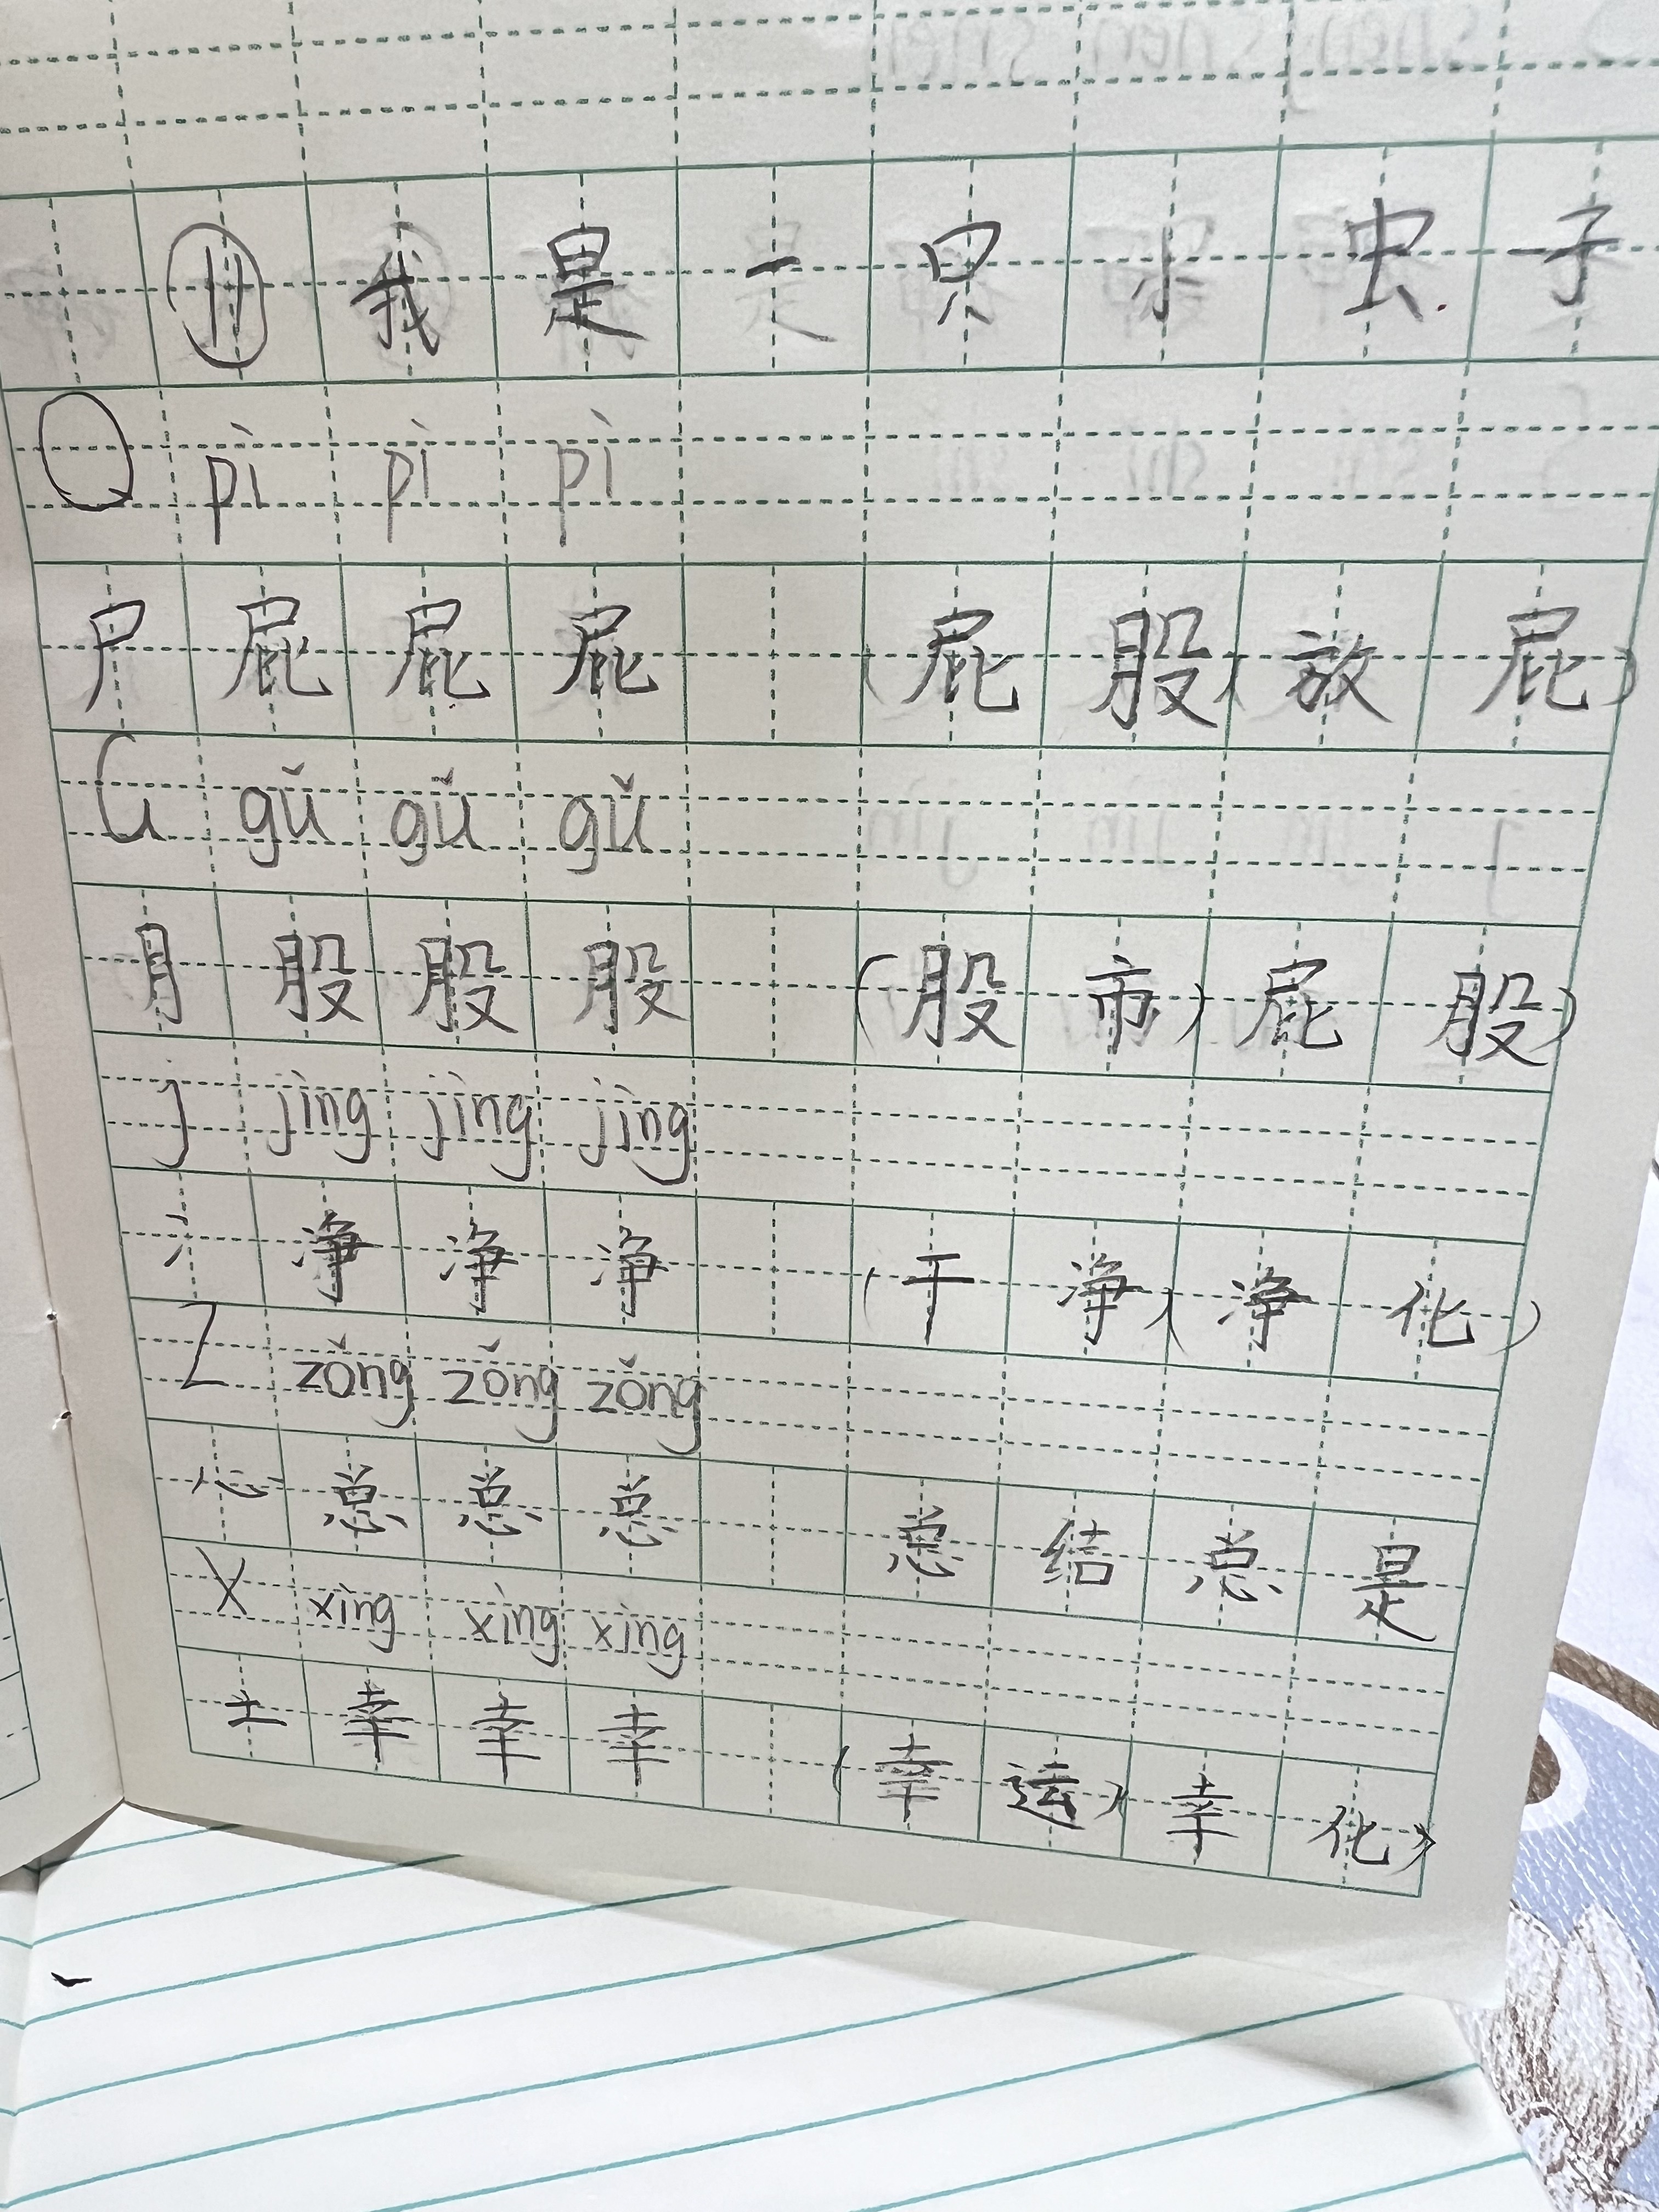 11 我是一只小虫子
Q pì pì pì
尸 屁 屁 屁 (屁股)(放屁)
G gǔ gǔ gǔ
月 股 股 股 (股市)屁股)
j jìng jìng jìng
冫 净 净 净 (干净)(净化)
Z zǒng zǒng zǒng
心 总 总 总 总结 总是
X xìng xìng xìng
土 幸 幸 幸 (幸运)幸化)